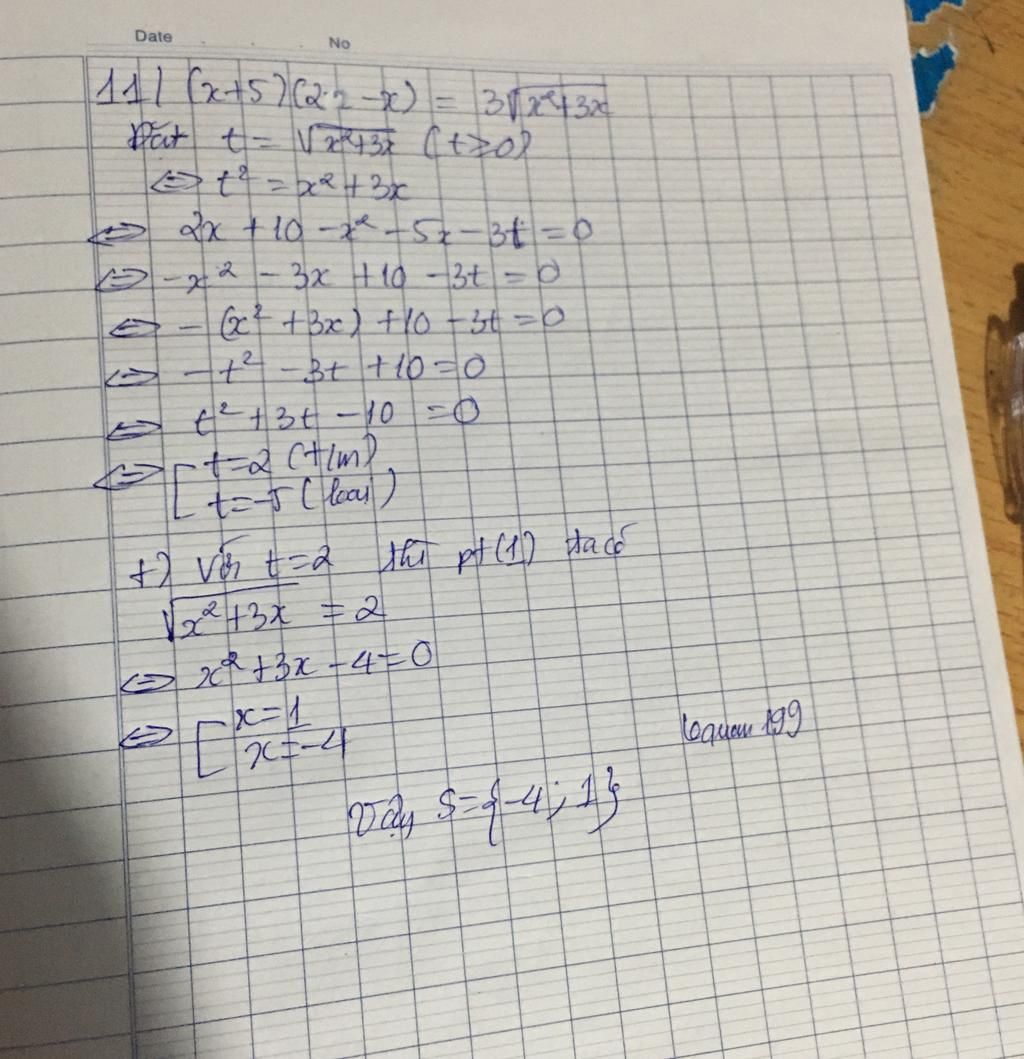 Date No
11/ (x+5)(2-x) = 3√x²+3x
Đặt t = √x²+3x (t≥0)
<=> t² = x² + 3x
<=> 2x + 10 - x² - 5x - 3t = 0
<=> -x² - 3x + 10 - 3t = 0
<=> - (x² + 3x) + 10 - 3t = 0
<=> - t² - 3t + 10 = 0
<=> t² + 3t - 10 = 0
<=> [ t=2 (t/m)
t=-5 (loại)
+) Với t=2 thì pt(1) ta có
√x²+3x = 2
<=> x² + 3x - 4 = 0
<=> [ x=1
x=-4
Vậy S={-4; 1}